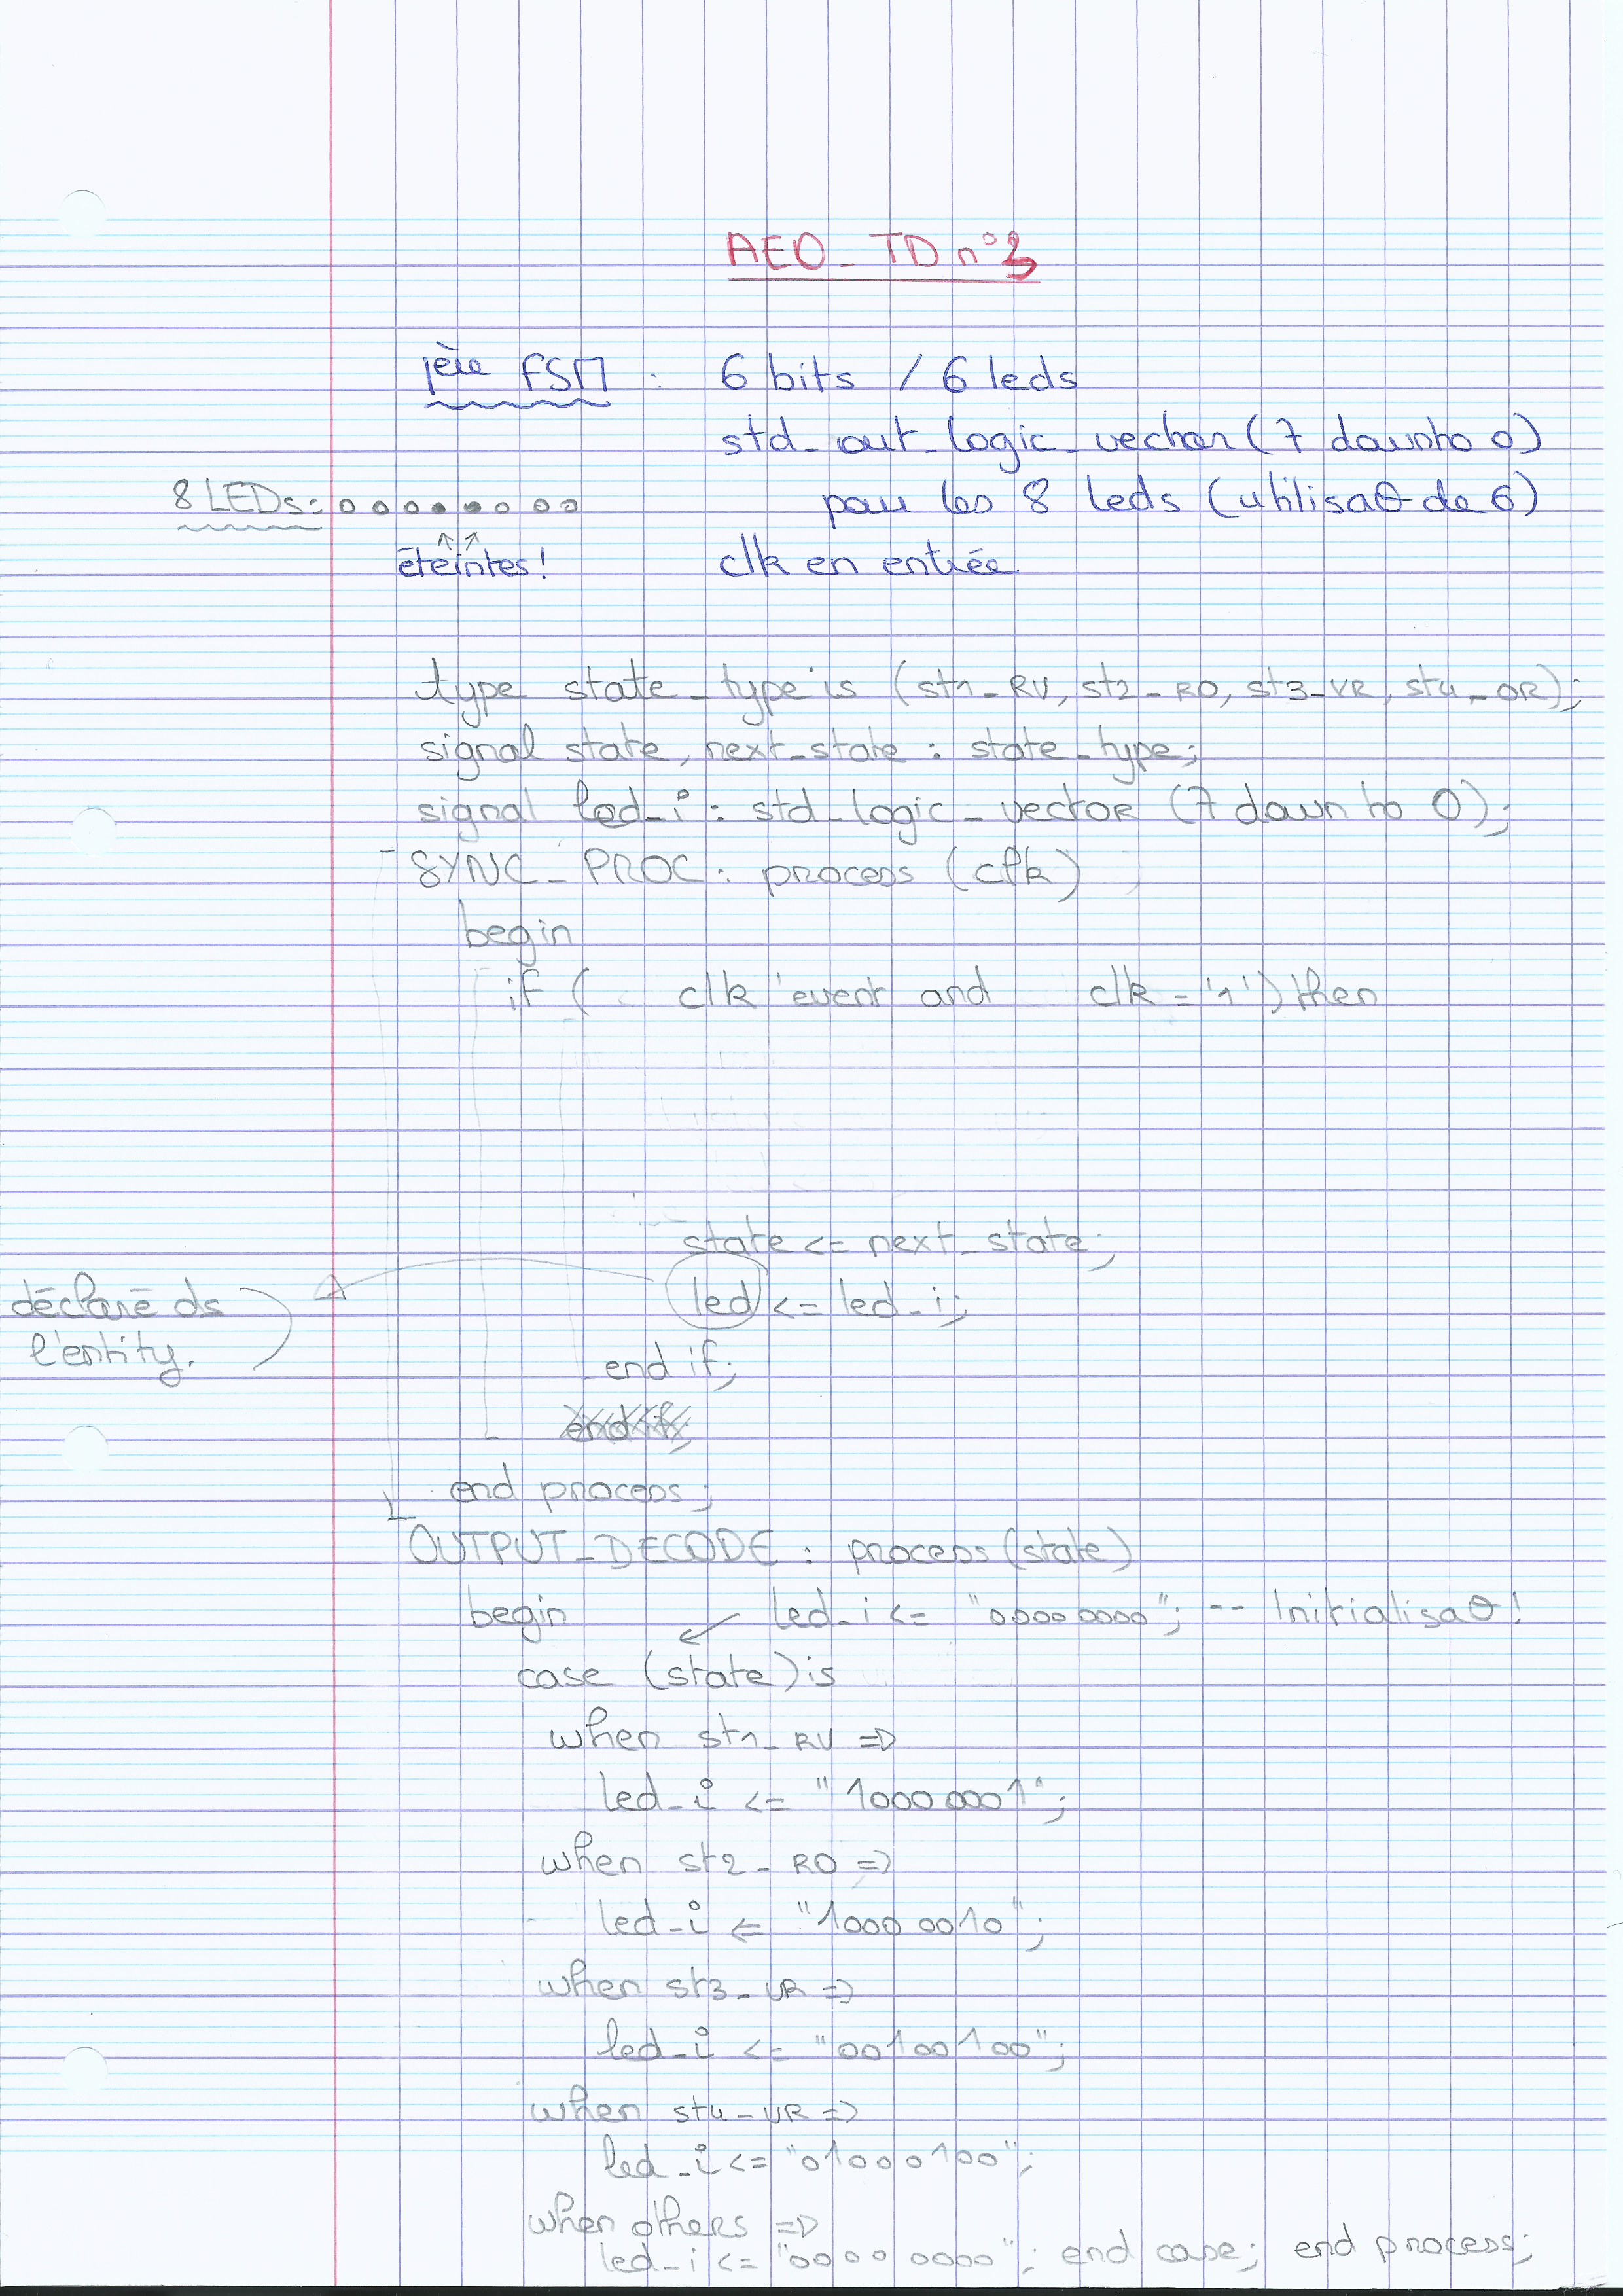 AEO_ TD n°3
1ère FSM : 6 bits / 6 leds
std_out_logic_vector (7 downto 0)
8 LEDs: pour les 8 leds (utilisaθ de 6)
éteintes! clk en entrée
type state_type is (st1_RV, st2_RO, st3_VR, st4_OR);
signal state, next_state : state_type;
signal led_i : std_logic_vector (7 down to 0);
SYNC_PROC : process (clk)
begin
if ( clk 'event and clk = '1') then
state <= next_state;
déclaré ds led <= led_i;
l'entity.
end if;
end if;
end process;
OUTPUT_DECODE : process (state)
begin led_i <= "0000 0000"; -- Initialisaθ!
case (state) is
when st1_RV =>
led_i <= "1000 0001";
when st2_RO =>
led_i <= "1000 0010";
when st3_VR =>
led_i <= "00100100";
when st4_VR =>
led_i <= "01000100";
when others =>
led_i <= "0000 0000"; end case; end process;